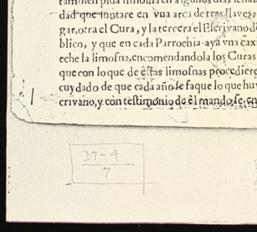 dad que juntare en vna arca de tres llaves,
gar, otra el Cura, y la tercera el Escrivano d
blico, y que en cada Parrochia aya vna cax
eche la limosna, encomendandola los Curas
que con lo que de estas limosnas procediere
cuydado de que cada año se saque lo que hu
crivano, y con testimonio de el mando, se en
37-4
7